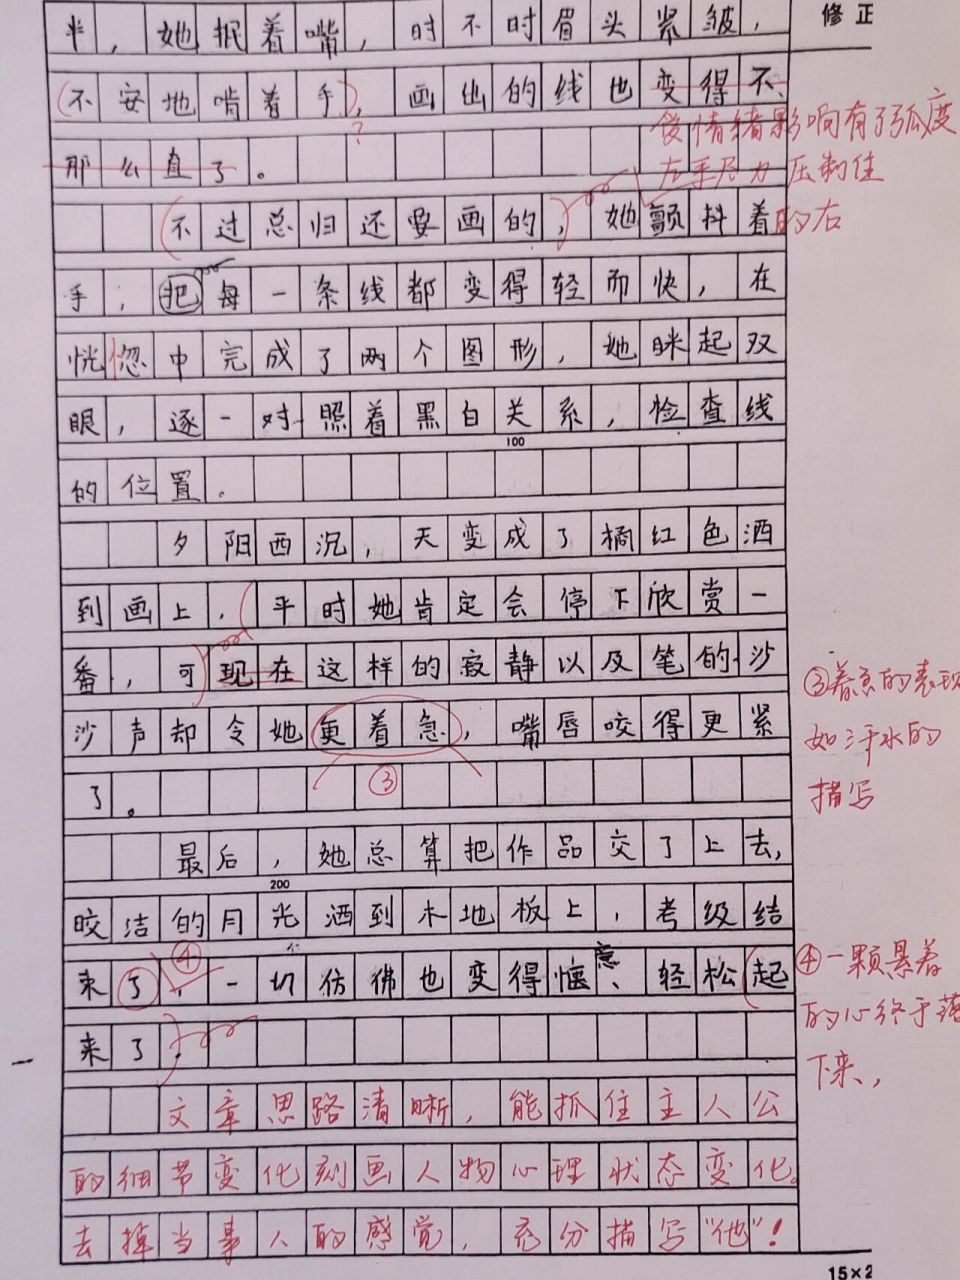 半，她抿着嘴，时不时眉头紧皱，
修正
不安地啃着手，画出的线也变得不
?
受情绪影响有了弧度
那么直了。
左手尽力压制住
不过总归还要画的，她颤抖着
的右
手，把每一条线都变得轻而快，在
恍惚中完成了两个图形，她眯起双
眼，逐一对照着黑白关系，检查线
100
的位置。
夕阳西沉，天变成了橘红色洒
到画上，平时她肯定会停下欣赏一
番，可现在这样的寂静以及笔的沙
③着急的表现
沙声却令她更着急，嘴唇咬得更紧
如汗水的
③
了。
描写
最后，她总算把作品交了上去，
200
皎洁的月光洒到木地板上，考级结
④
束了，一切仿佛也变得惬意、轻松起
④一颗悬着
的心终于落
来了。
下来，
文章思路清晰，能抓住主人公
的细节变化刻画人物心理状态变化。
去掉当事人的感觉，充分描写“他”！
15×2